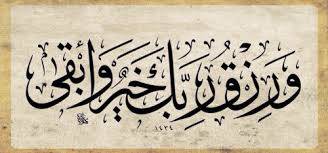 وَرِزْقُ رَبِّكَ خَيْرٌ وَأَبْقَى
١٤٣٤